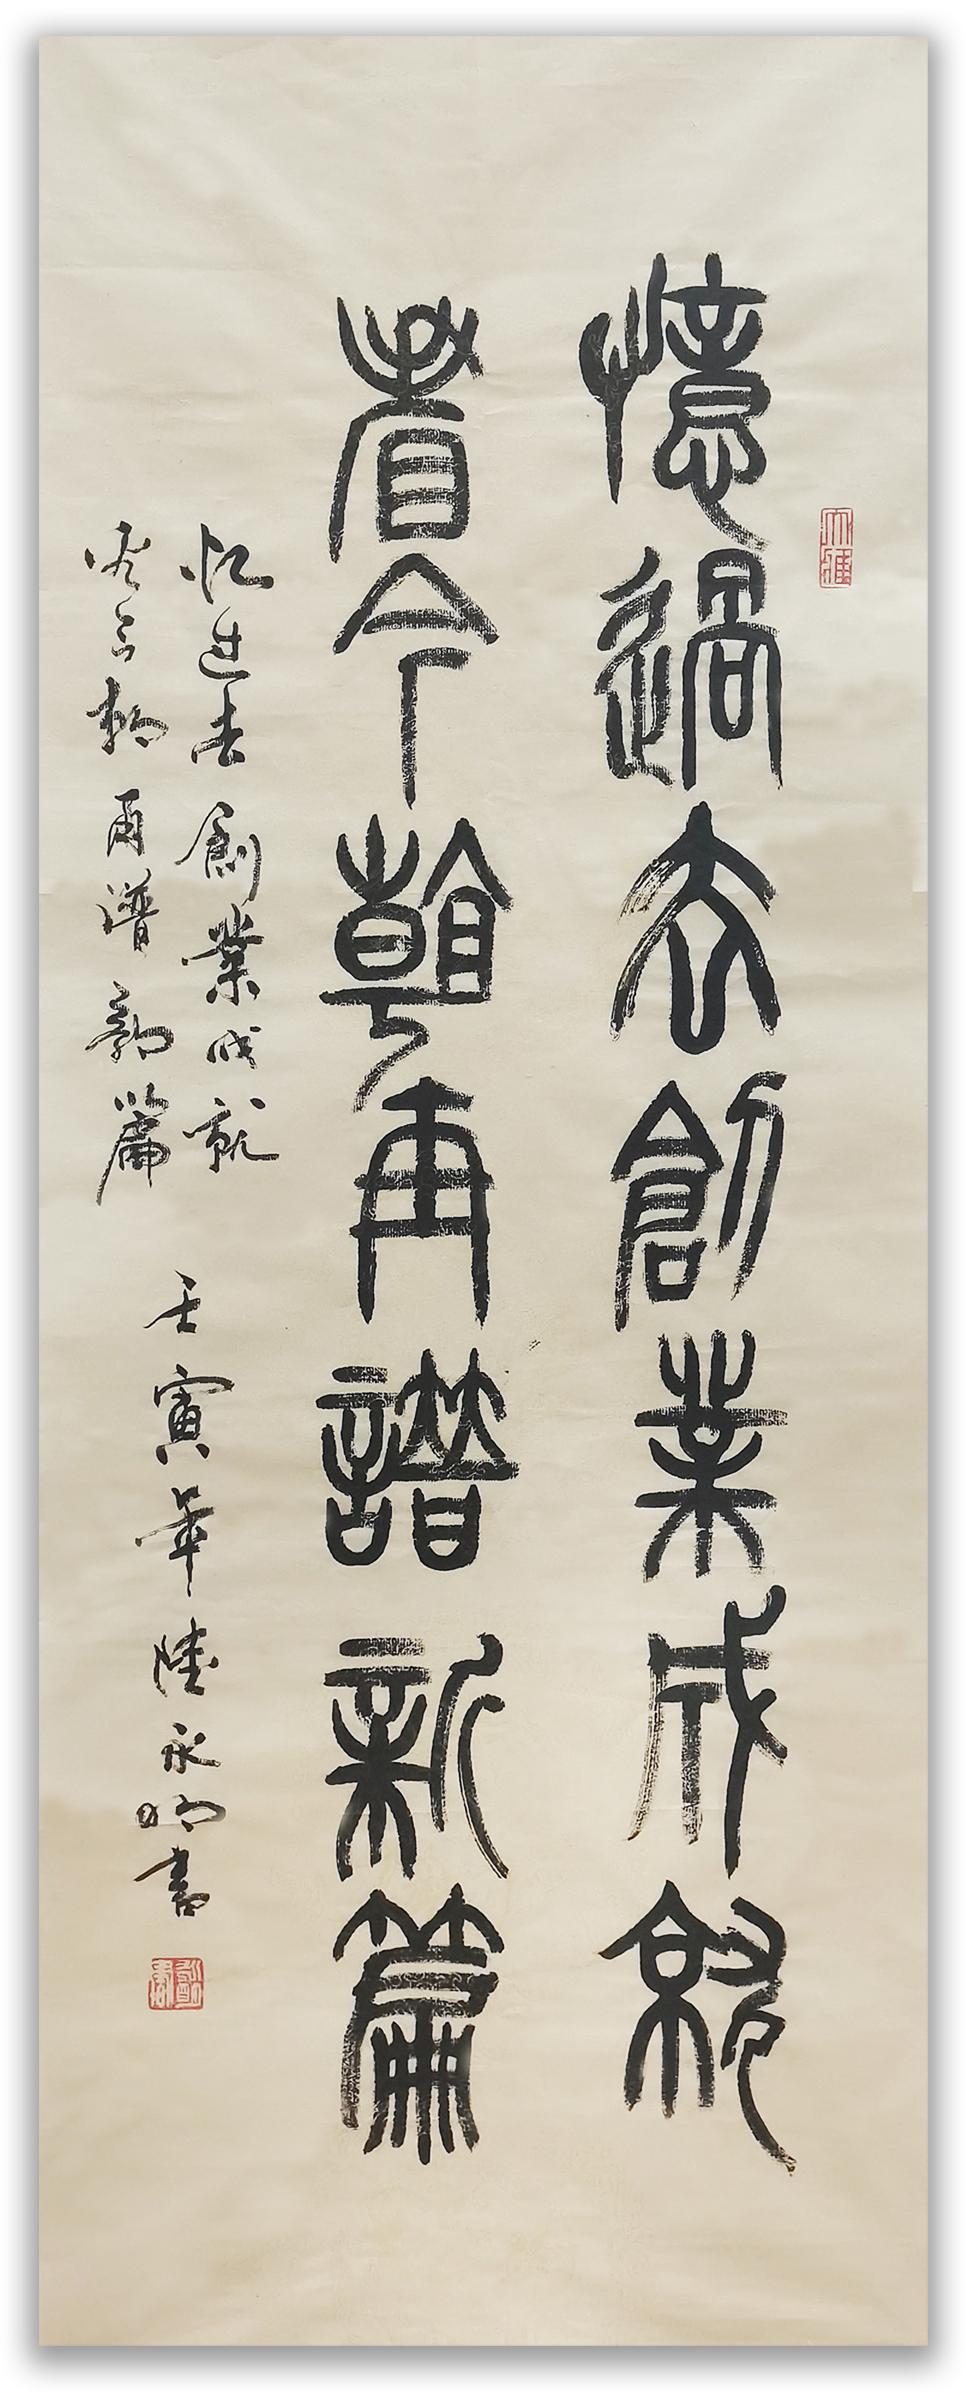 憶過去創業成就
看今朝再譜新篇
忆过去創業成就
看今朝再谱新篇
壬寅年陸永明書
大雅